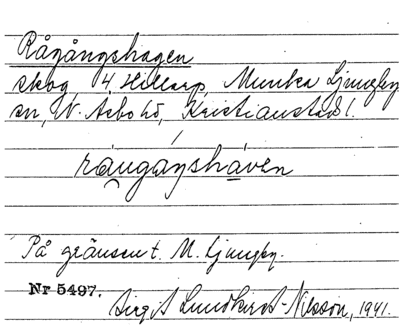 Rågångshagen
skog, 4 Hillarp, Munka Ljungby
sn, N. Åsbo hd, Kristianstads l.
rå̀ŋgáŋshàven
På gränsen t. M. Ljungby.
Nr 5497.
Birgit Lundkvist-Nilsson, 1941.